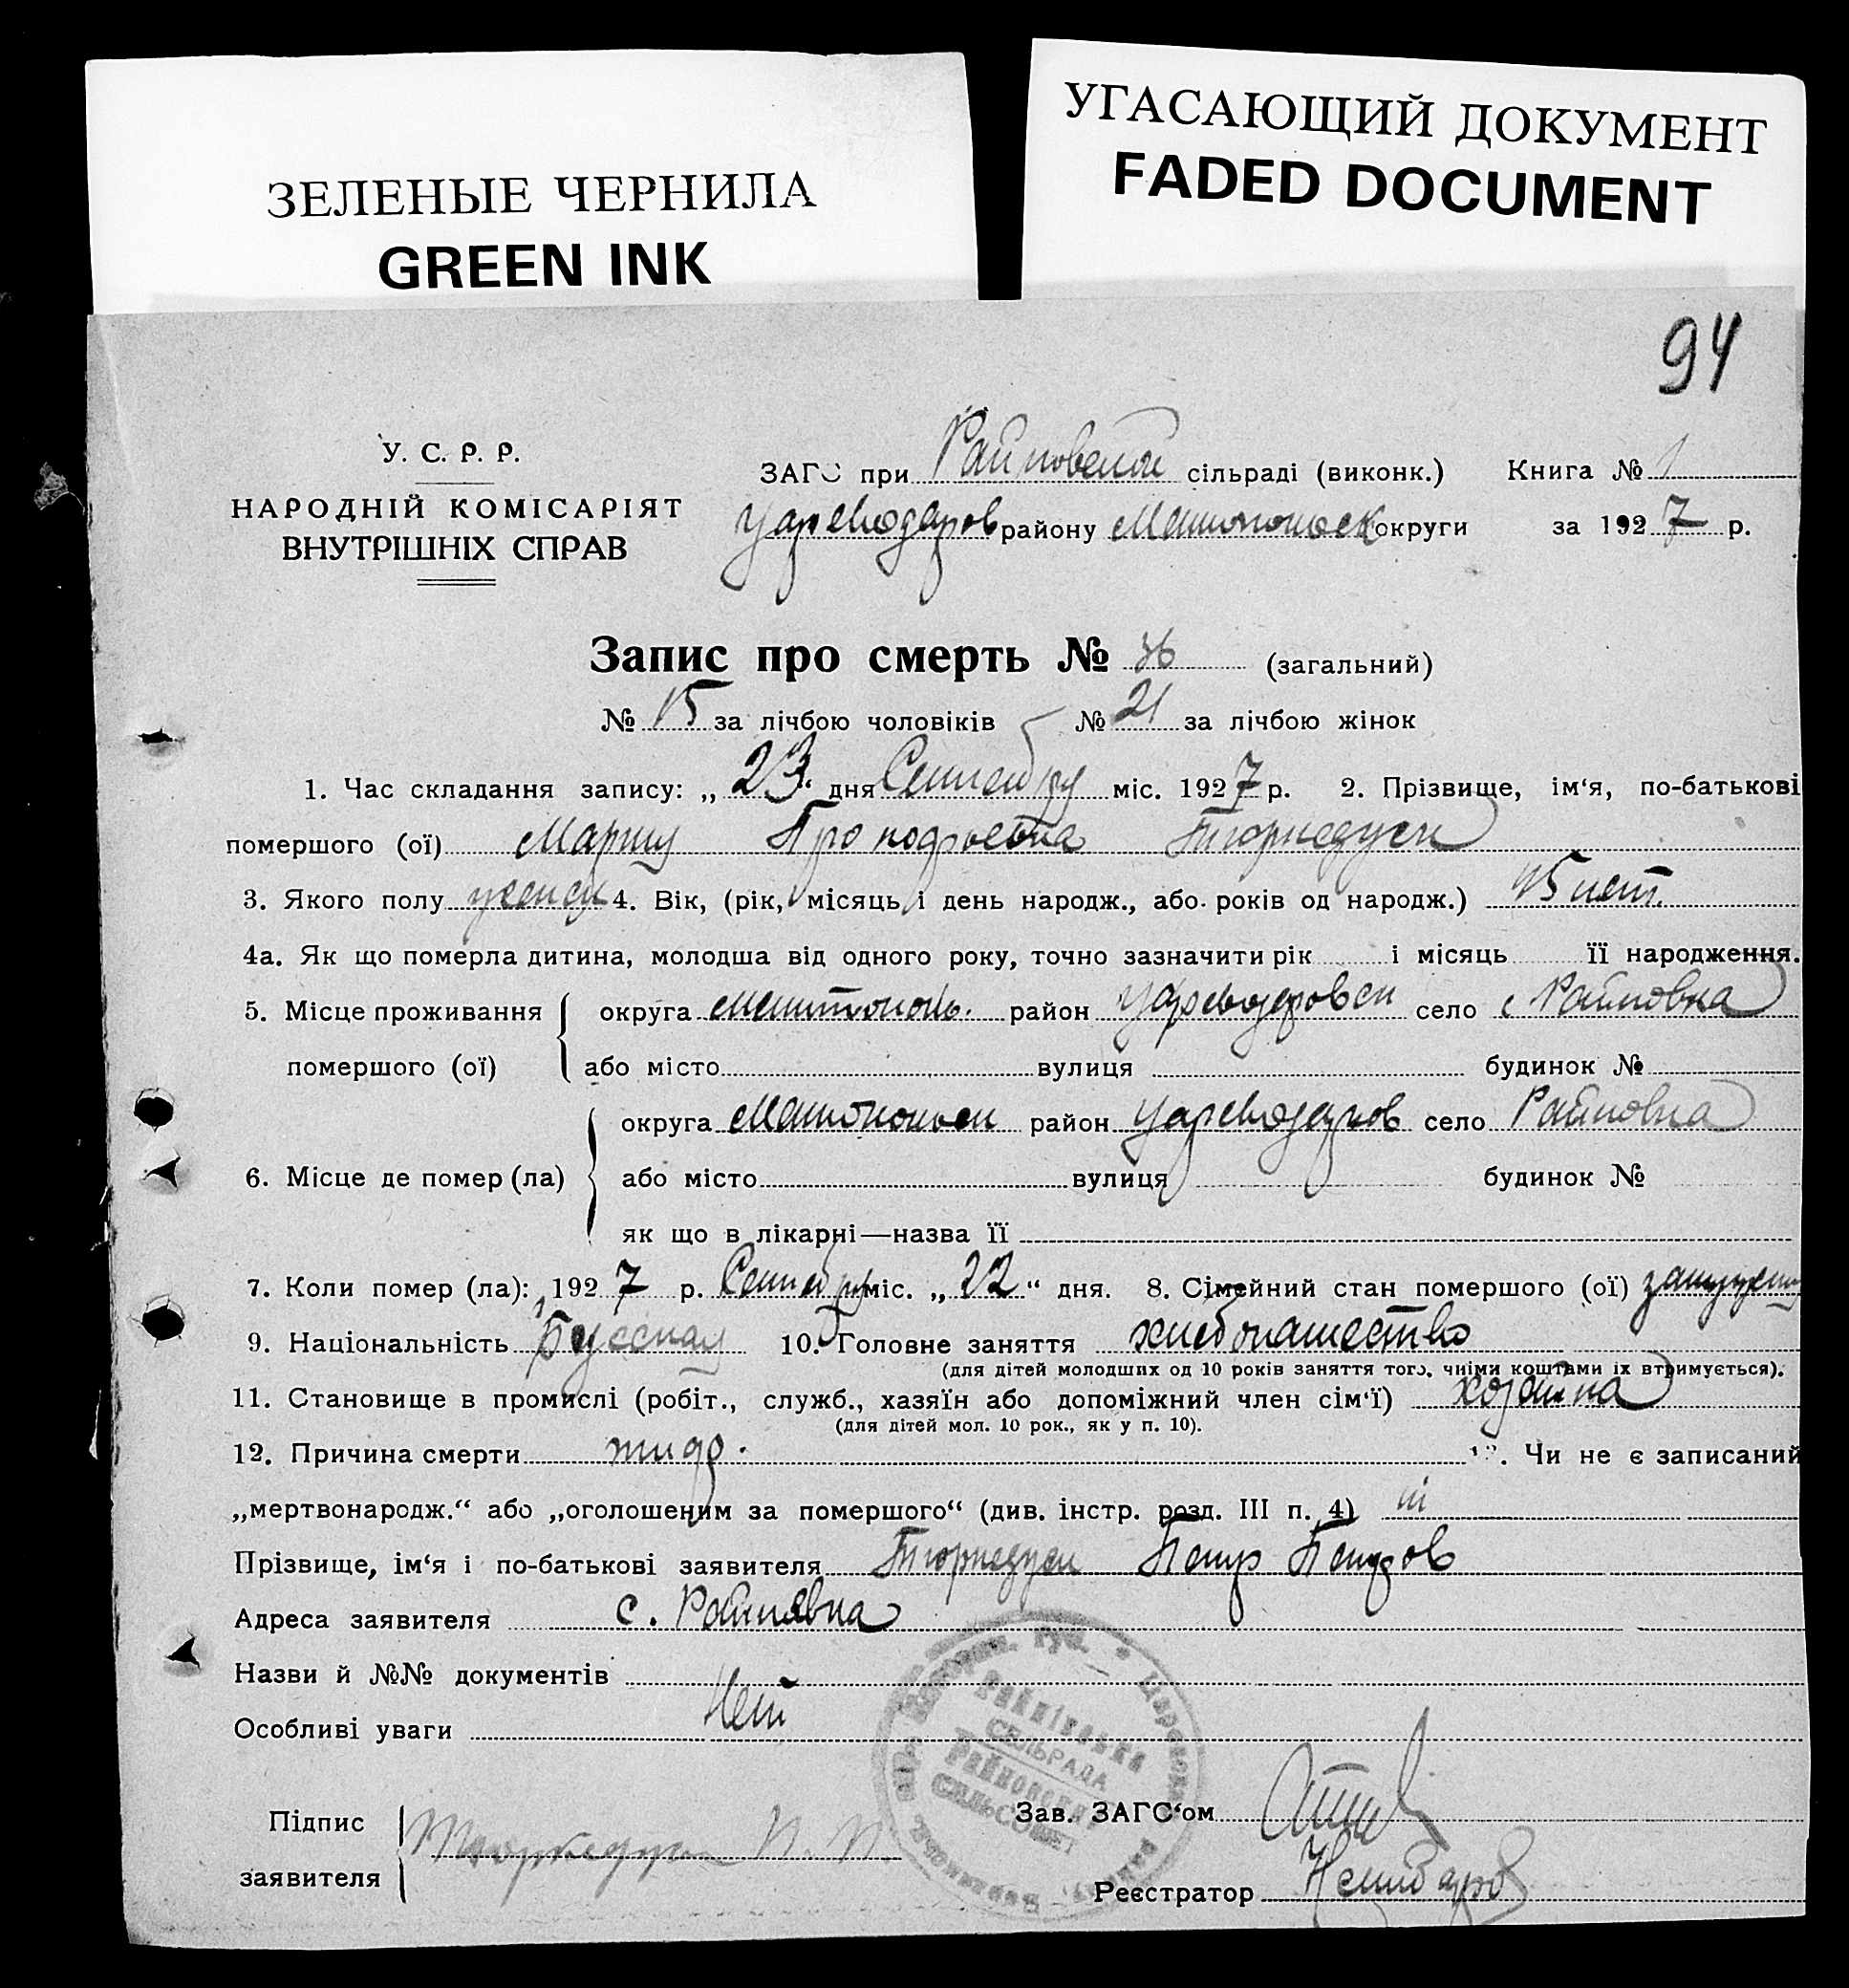 ЗЕЛЕНЫЕ ЧЕРНИЛА
GREEN INK
УГАСАЮЩИЙ ДОКУМЕНТ
FADED DOCUMENT
94
У. С. Р. Р.
НАРОДНІЙ КОМІСАРІЯТ
ВНУТРІШНІХ СПРАВ
ЗАГС при Райновской сільраді (виконк.) Книга № 1
Цареводаров району Мелитопольск округи за 1927 р.
Запис про смерть № 36 (загальний)
№ 15 за лічбою чоловіків № 21 за лічбою жінок
1. Час складання запису: „23“ дня Сентября міс. 1927 р. 2. Прізвище, ім‘я, по-батькові
помершого (ої) Мария
3. Якого полу женск 4. Вік, (рік, місяць і день народж., або років од народж.) 45 лет.
4а. Як що померла дитина, молодша від одного року, точно зазначити рік і місяць її народження.
5. Місце проживання
помершого (ої)
округа Мелитополь. район Цареводаровск село с Райновка
або місто вулиця будинок №
6. Місце де помер (ла)
округа Мелитопольск район Цареводаров село Райновка
або місто вулиця будинок №
як що в лікарні—назва її
7. Коли помер (ла): 1927 р. Сентября міс. „22“ дня. 8. Сімейний стан помершого (ої) замужем
9. Національність Русская 10. Головне заняття хлебопашество
(для дітей молодших од 10 років заняття того, чиїми коштами їх втримується).
11. Становище в промислі (робіт., служб., хазяїн або допоміжний член сім‘ї) хозяйка
(для дітей мол. 10 рок., як у п. 10).
12. Причина смерти 13. Чи не є записаний
„мертвонародж.“ або „оголошеним за помершого“ (див. інстр. розд. III п. 4)
Прізвище, ім‘я і по-батькові заявителя Петр Петров
Адреса заявителя с. Райновка
Назви й №№ документів
Особливі уваги Нет
Райнівська
СЕЛЬРАДА
Райновский
СЕЛЬСОВЕТ
Підпис
заявителя П. П.
Зав. ЗАГС‘ом
Реєстратор